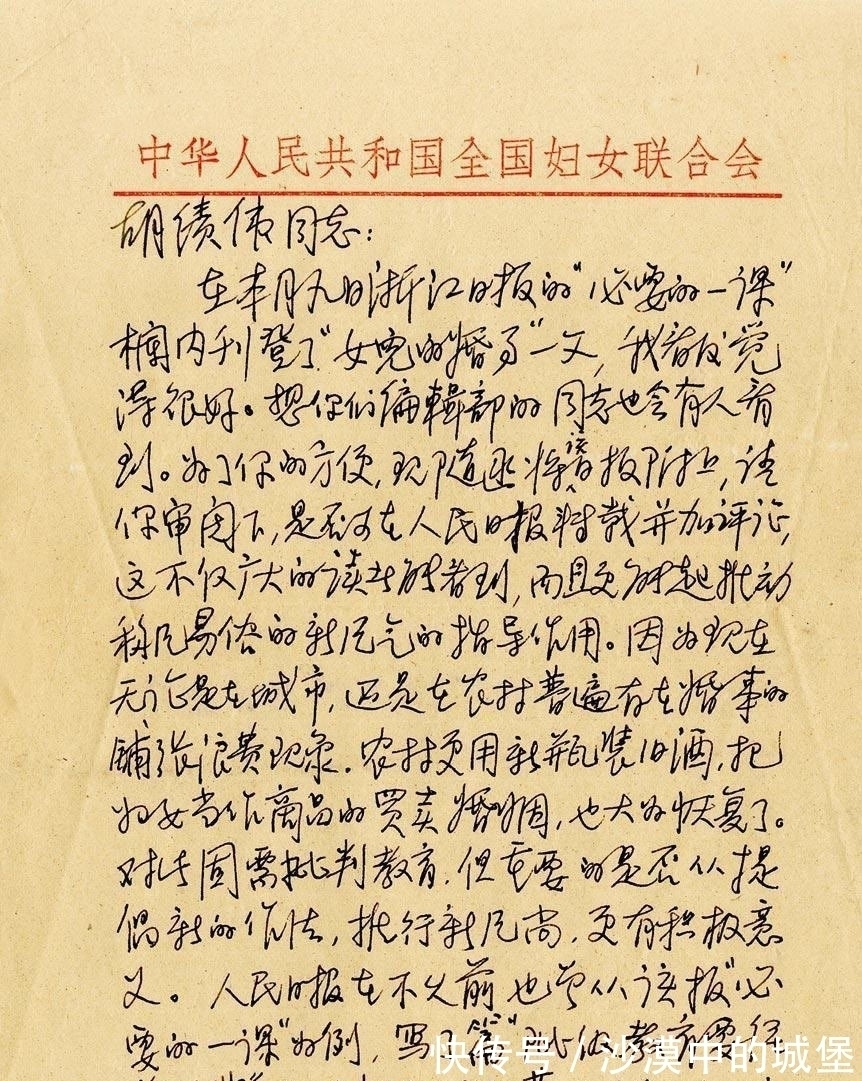 中华人民共和国全国妇女联合会
胡绩伟同志:
在本月九日浙江日报的"必要的一课"
栏内刊登了"女儿的婚事"一文,我看后觉
得很好。想你们编辑部的同志也会有人看
到。为了你的方便,现随函将该报附上,请
你审阅下,是否可在人民日报转载并加评论,
这不仅广大的读者能看到,而且更能起推动
移风易俗的新风气的指导作用。因为现在
无论是在城市,还是在农村普遍存在婚事的
铺张浪费现象.农村更用新瓶装旧酒,把
妇女当作商品的买卖婚姻,也大为恢复了。
对此固需批判教育.但重要的是否从提
倡新的作法,推行新风尚.更有积极意
义。人民日报在不久前也曾从该报"必
要的一课"为例,写了篇"
快传号/沙漠中的城堡